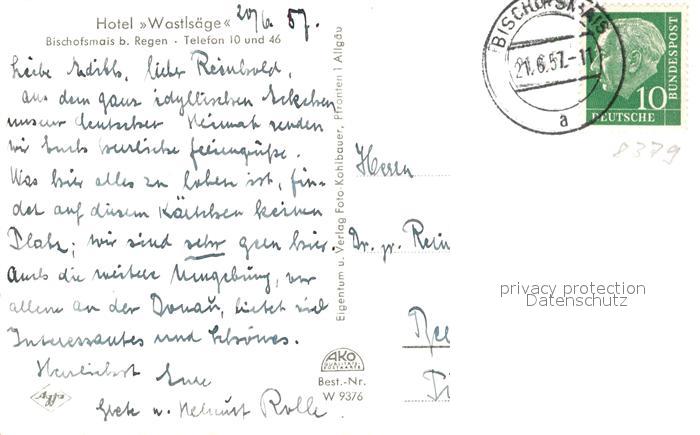 Hotel »Wastlsäge« 20/6. 57.
Bischofsmais b. Regen · Telefon 10 und 46
lieber Reinhold,
aus dem ganz idyllischen Eckchen
unserer deutschen Heimat senden
wir Euch herzliche Feriengrüße.
Was hier alles zu loben ist, fin-
det auf diesem Kärtchen keinen
Platz; wir sind sehr gern hier.
Auch die weitere Umgebung, vor
allem an der Donau, bietet viel
Interessantes und Schönes.
Herzlichst Eure
Grete u. Helmut Rolle
Eigentum u. Verlag Foto-Kohlbauer, Pfronten i Allgäu
AKO
QUALITÄTS
POSTKARTE
Best.-Nr.
W 9376
Agfa
BISCHOFSMAIS
21.6.57.-17
a
10
DEUTSCHE
BUNDESPOST
8379
Herrn
Dr. jr. Rein
privacy protection
Datenschutz